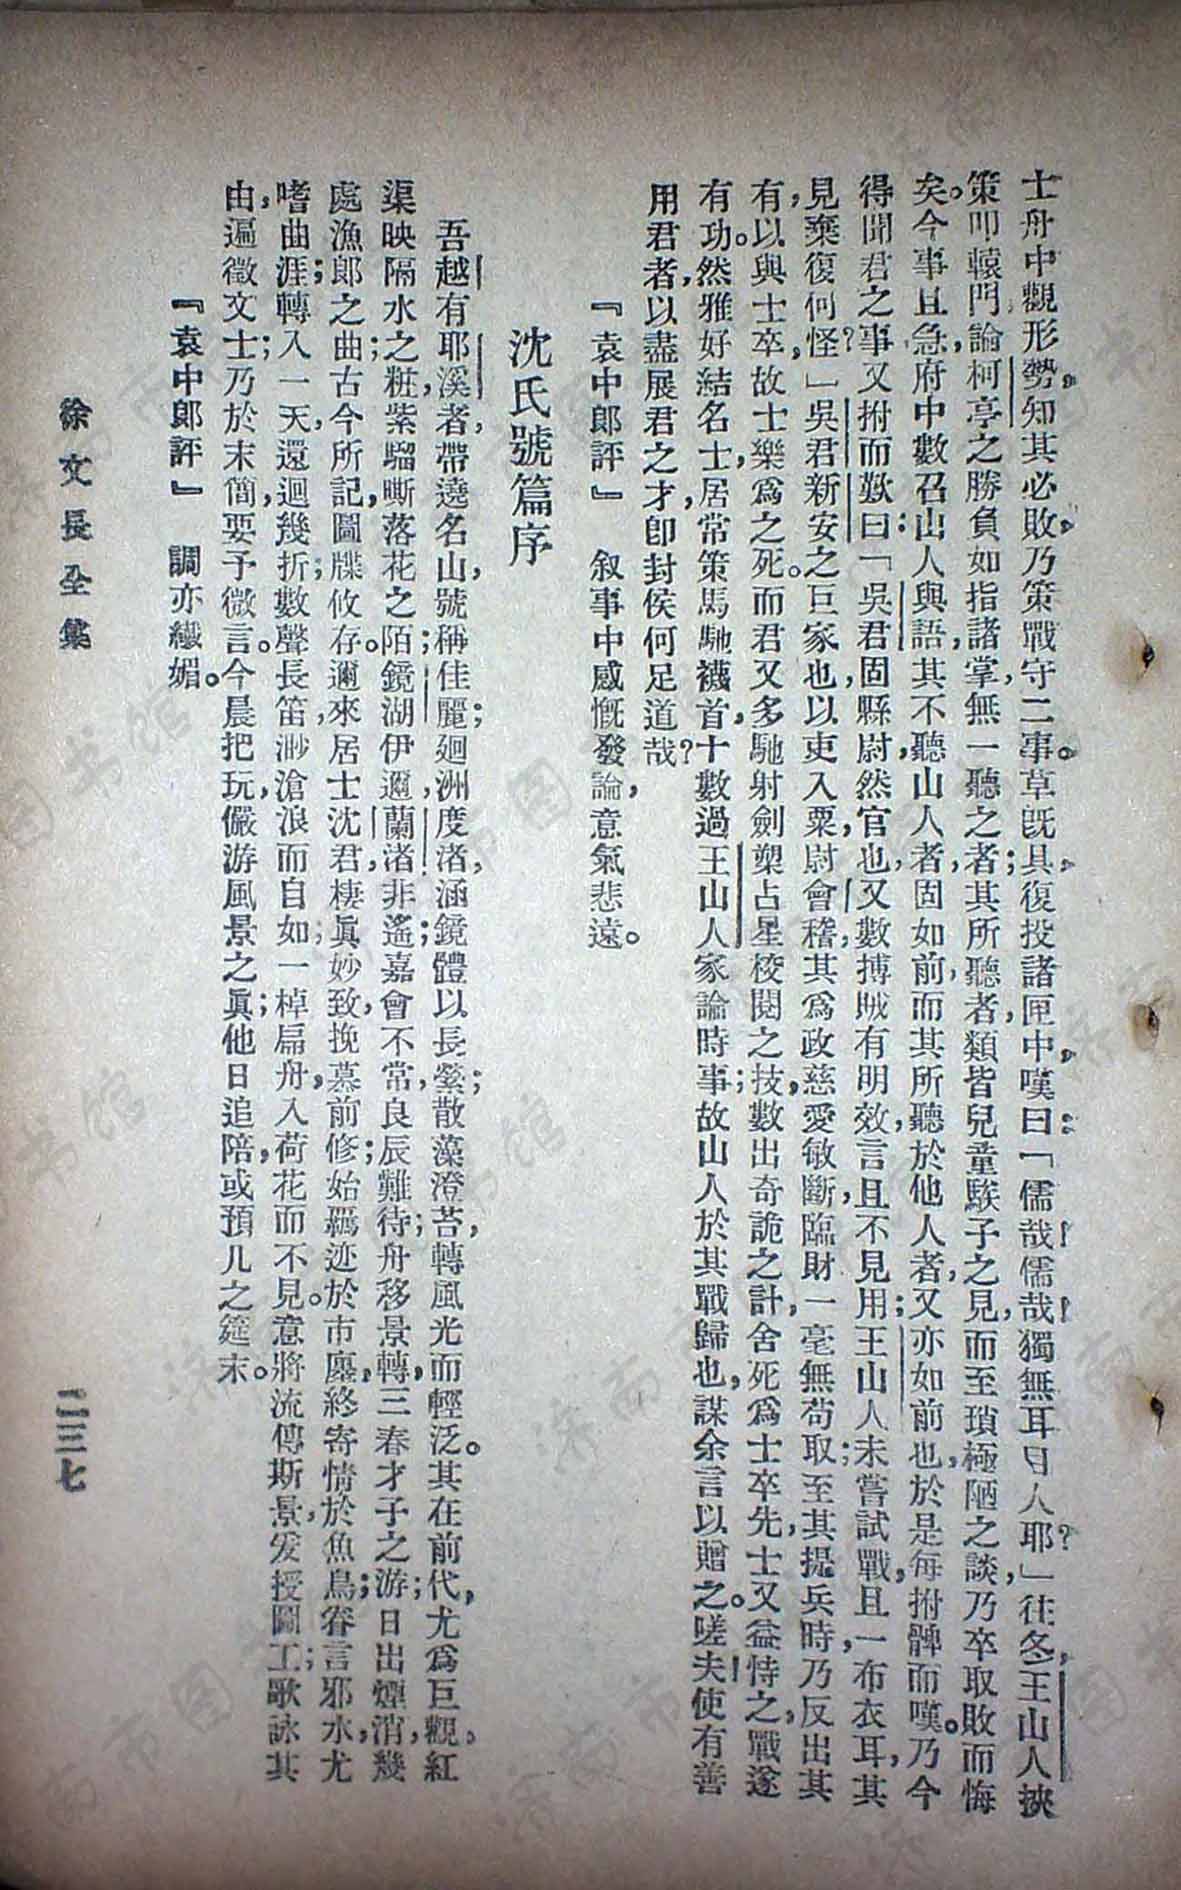 士舟中觀形勢，知其必敗，乃策戰守二事。草既具，復投諸匣中，嘆曰：「儒哉儒哉！獨無耳目人耶？」往冬，王山人挾
策叩轅門，論柯亭之勝負如指諸掌，無一聽之者；其所聽者，類皆兒童騃子之見，而至瑣極陋之談，乃卒取敗而悔
矣。今事且急，府中數召山人與語，其不聽山人者，固如前，而其所聽於他人者，又亦如前也，於是每拊髀而嘆。乃今
得聞君之事，又拊而歎曰：「吳君固縣尉，然官也，又數搏賊有明效，言且不見用；王山人未嘗試戰，且一布衣耳，其
見棄復何怪？」吳君新安之巨家也，以吏入粟尉會稽，其為政慈愛敏斷，臨財一毫無苟取；至其提兵時，乃反出其
有，以與士卒，故士樂為之死。而君又多馳射劍槊占星校閱之技，數出奇詭之計，舍死為士卒先，士又益恃之，戰遂
有功。然雅好結名士，居常策馬馳襪首，十數過王山人家論時事；故山人於其戰歸也，謀余言以贈之。嗟夫！使有善
用君者，以盡展君之才，卽封侯何足道哉？
『袁中郎評』　叙事中感慨發論，意氣悲遠。
沈氏號篇序
吾越有耶溪者，帶遶名山，號稱佳麗；廻洲度渚，涵鏡體以長縈；散藻澄苔，轉風光而輕泛。其在前代，尤為巨觀。紅
渠映隔水之粧；紫騮嘶落花之陌。鏡湖伊邇，蘭渚非遙；嘉會不常，良辰難待；舟移景轉，三春才子之游；日出煙消，幾
處漁郎之曲，古今所記，圖牒攸存。邇來居士沈君，棲眞妙致，挽慕前修；始羈迹於市廛，終寄情於魚鳥；眷言邪水，尤
嗜曲涯；轉入一天，還迴幾折；數聲長笛，渺滄浪而自如；一棹扁舟，入荷花而不見。意將流傳斯景，爰授圖工；歌詠其
由，遍徵文士；乃於末簡，要予微言。今晨把玩，儼游風景之眞；他日追陪，或預几之筵末。
『袁中郎評』　調亦纖媚。
徐文長全集
二三七